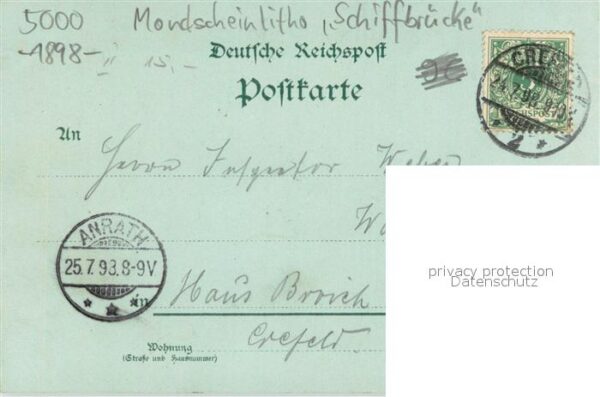 5000 Mondscheinlitho „Schiffbrücke“
-1898-
" 15,-
Deutsche Reichspost
Postkarte
CREFELD
24.7.98.9-10
2
An
Herrn Inspector Weber
ANRATH
25.7.98.8-9V
privacy protection
Datenschutz
in
Haus Broich
Crefeld.
Wohnung
(Straße und Hausnummer)